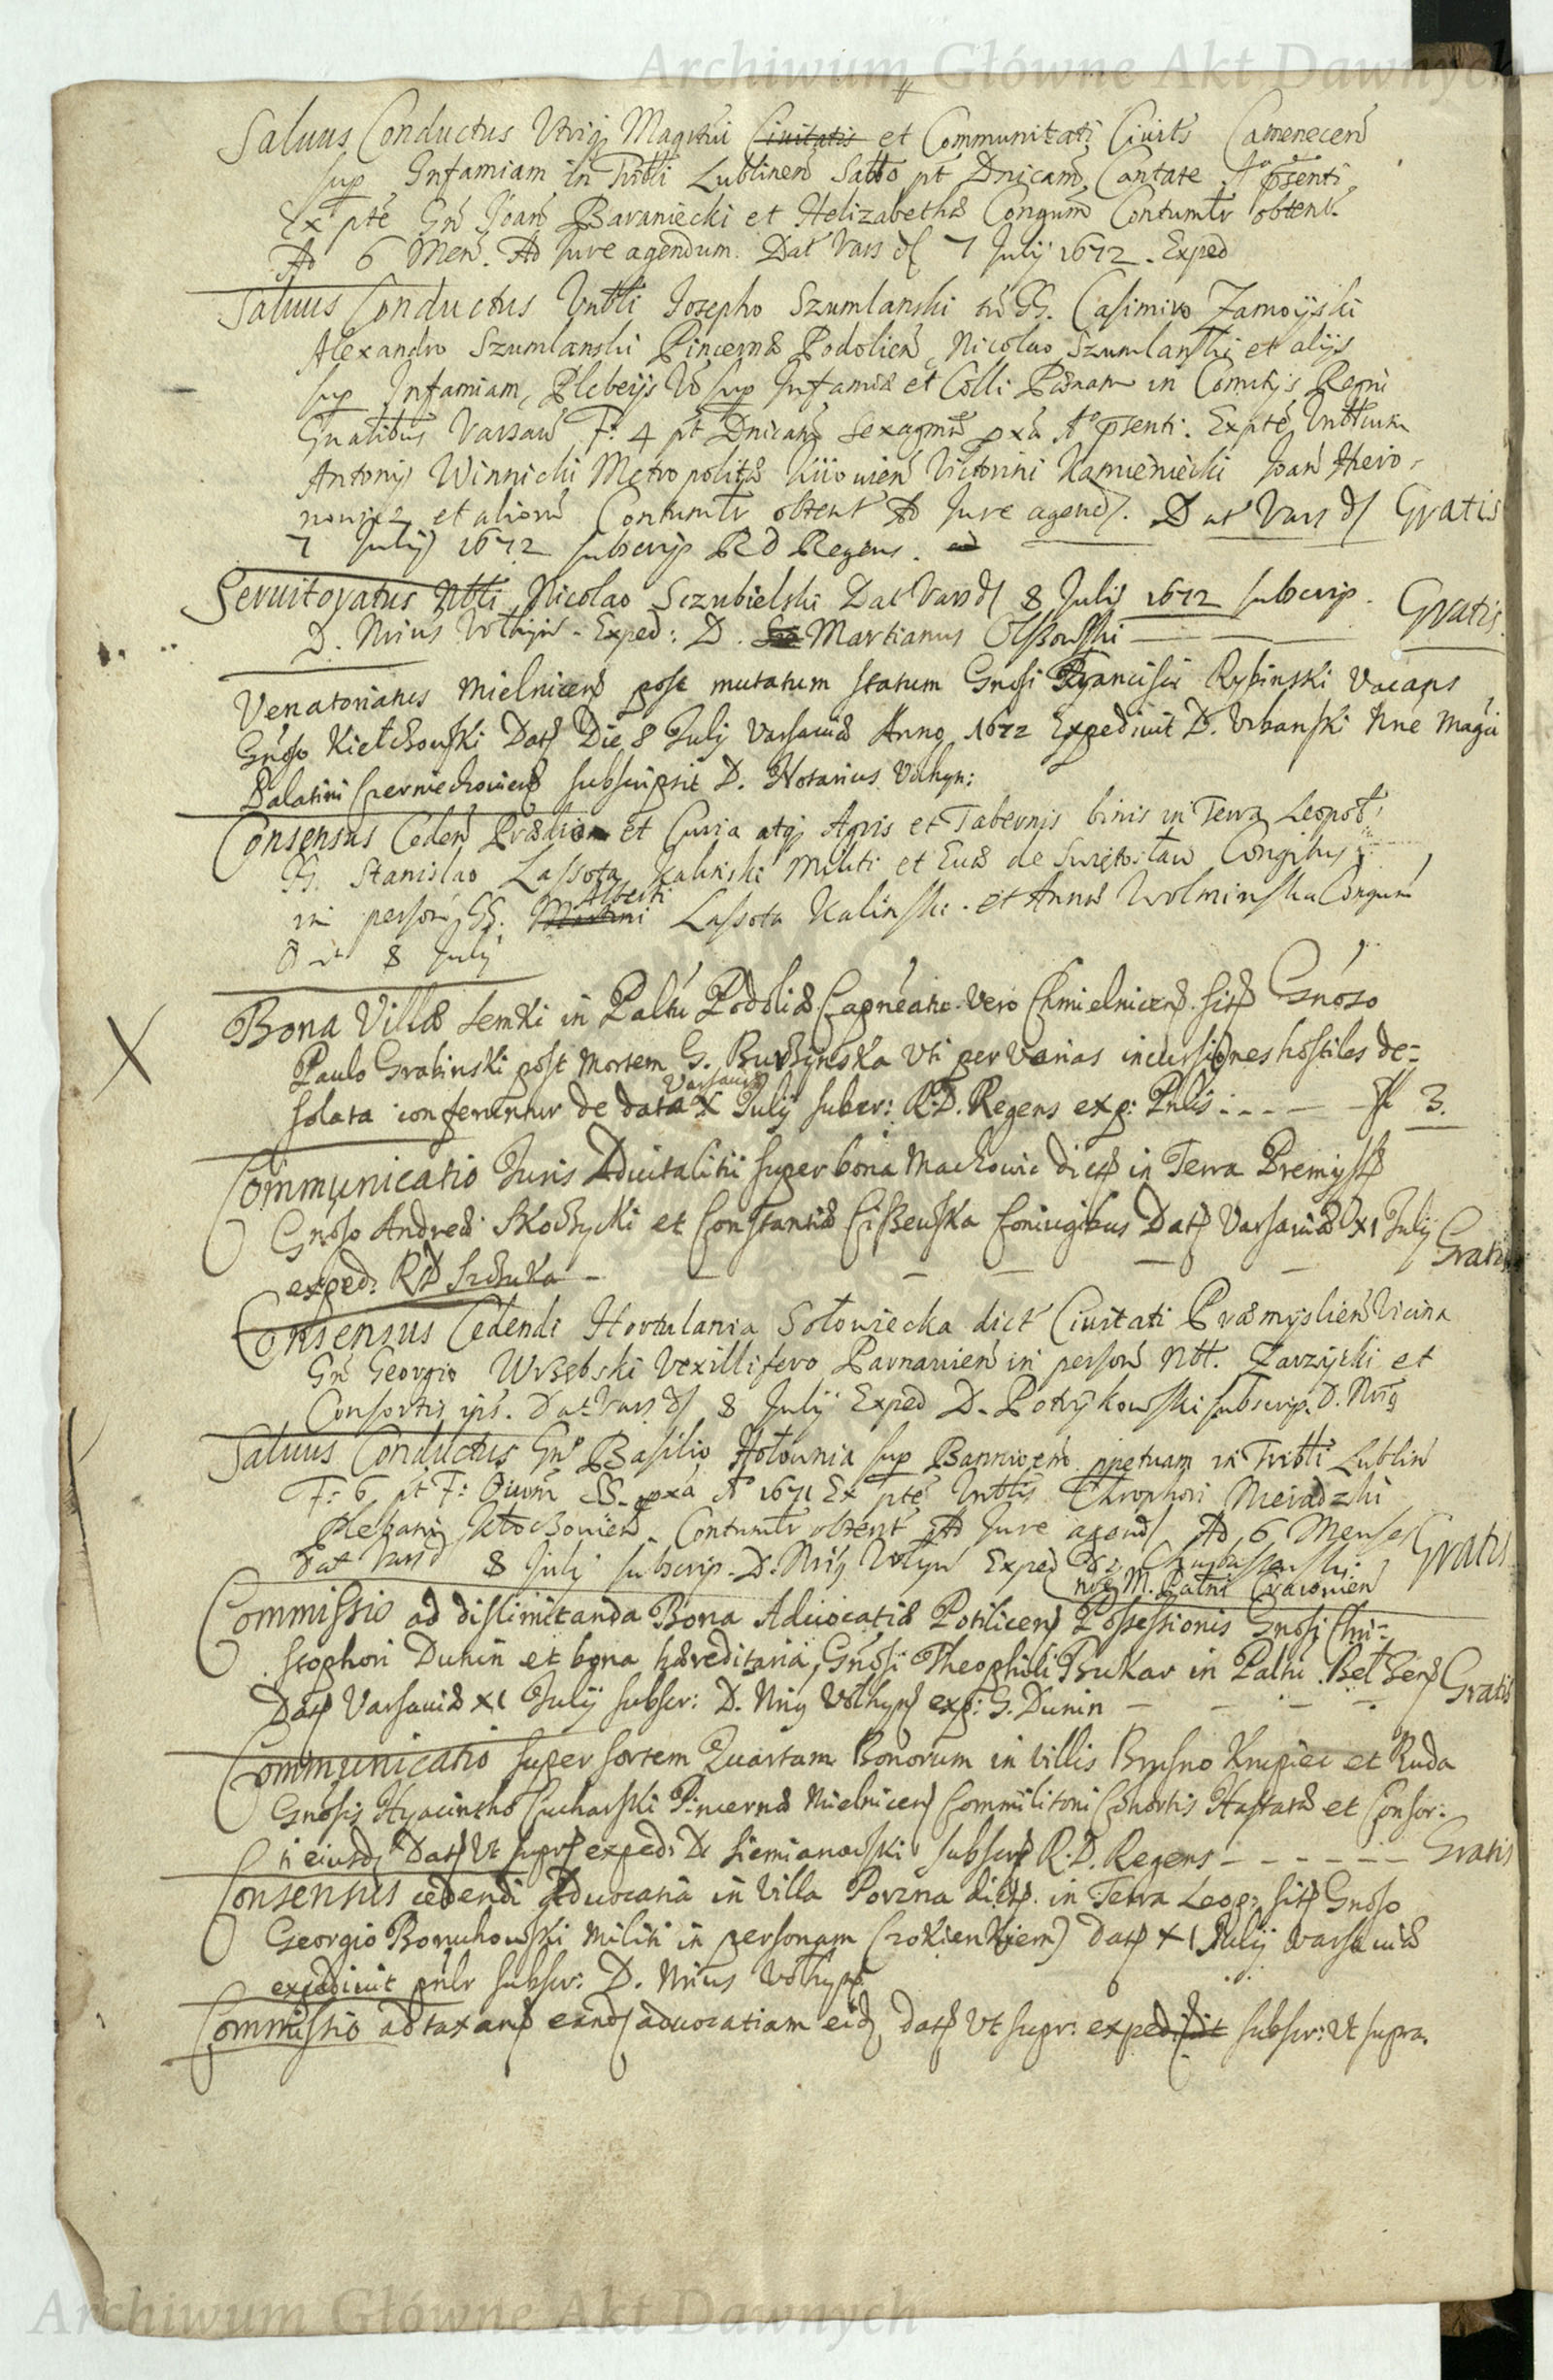 Archiwum Główne Akt Dawnych
Salvus Conductus Utriq Magrtui Civitatis et Communitati Civits Camenecen
sup Infamiam in Tribli Lublinen Sabbo pt Dnicam Cantate Ao psenti
Ex pte Gn Joan Baraniecki et Helizabetha Congum Contumlr obtent
Ad 6 Men. Ad Jure agendum. Dat Vars d 7 July 1672. Exped
Salvus Conductus Vnbli Josepho Szumlanski GG. Casimiro Zamoyski
Alexandro Szumlanski Pincerna Podolien, Nicolao Szumlanski et alijs
sup Infamiam, Plebeijs Vo sup Infamia et Colli Paenam in Comitijs Regni
Gnalibus Varsav F. 4 pt Dnicam Sexagma pxa Ao psenti. Ex pte Vnblium
Antonij Winnicki Metropolita Kiiovien Victorini Kamieniecki Joan Hero-
et aliorum Contumlr obtent Ad Jure agend. Dat Vars d Gratis
7 July 1672 subscrip R D Regens.
Servitoratus Nbli Nicolao Sczubielski Dat Vars d 8 Julij 1672 subscrip. Gratis.
D. Nrius Volhijn. Exped: D. Martianus Olszowski
Venatoriatus Mielnicen post mutatum statum Gnosi Francisci Rybinski vacans
Gnoso Kiełchowski Dat Die 8 July Varsavia Anno 1672 Expedivit D. Urbanski Nne Magci
Palatini Czerniechovien subscripsit D. Notarius Volhyn:
Consensus Ceden Praedium et Curia atq Agris et Tabernis binis in Terra Leopol
G. Stanislao Lassota Kalinski Militi et Eva de Swiętosław Congibus
in person GG. Martini Alberti Lassota Kalinski. et Anna Wolminska Congum
8 July
Bona Villa Semki in Paltu Podolia Capneatu vero Chmielnicen. sit Gnoso
Paulo Grabinski post mortem G. Burzynska uti per varias incursiones hostiles de-
solata conferuntur de data Varsavia X July subscr: R.D. Regens exp: Pnlis: fl 3.
Communicatio Juris Advitalitii super bona Machowic dict in Terra Premijsl
Gnoso Andrea Skorzycki et Constantia Ciszewska Coniugibus Dat Varsavia XI July Gratis
exped: R.D Szczuka
Consensus Cedendi Hortulania Sołowiecka dict Civitati Praemyslien Vicina
Gn Georgio Wrzębski Vexillifero Parnavien in person Nbl. Zarzycki et
Consortis ips. Dat Vars d 8 July Exped D. Potrykowski subscrip. D. Nrig
Salvus Conductus Gn Basilio Hołownia sup Bannioem ppetuam in Tribli Lublin
F: 6 pt F: Oium SS. pxa Ao 1671 Ex pte Vnblis Chrophori Meiadzki
Plebani Contumlr obtent Ad Jure agend Ad 6 Menses Gratis
Dat Vars d 8 July subscrip. D. Nrig Volyn Exped
nre M. Patni Cracovien
Commissio ad dislimitanda Bona Advocatia Potilicen Possessionis Gnosi Chri-
stophori Dunin et bona haereditaria, Gnosi Theophili Bukar in Paltu Belzen Gratis
Dat Varsavia XI July subscr: D. Nrig Volhyn exp: G. Dunin
Communicatio super sortem Quartam Bonorum in Villis Brusno Krupiec et Ruda
Gnosis Hyacintho Sucharski Pincerna Mielnicen Commilitoni Cohortis Hastata et Consor:
ti eiusd Dat Ut supr exped: D. Siemianowski subscr R.D. Regens Gratis
Consensus cedendi Advocatia in Villa Porzna dict. in Terra Leop: sit Gnoso
Georgio Boruchowski Militi in personam Crokienkiem Dat XI July Varsavia
expedivit pnlr subscr: D. Nrius Volhyn
Commissio ad taxand eand advocatiam eid, Dat Ut supr: expedivit subscr: Ut supra.
Archiwum Główne Akt Dawnych